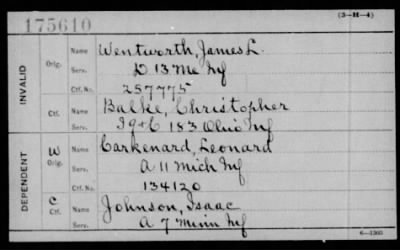 175610
(3—H—4)
INVALID
Orig.
Name Wentworth, James L.
Serv. D 13 Me Inf
Ctf. No. 257775
Ctf.
Name Balke, Christopher
Serv. I 9 + C 183 Ohio Inf
DEPENDENT
W
Orig.
Name Carkenard, Leonard
Serv. A 11 Mich Inf
Ctf. No. 134120
C
Ctf.
Name Johnson, Isaac
Serv. A 7 Minn Inf
6—1360